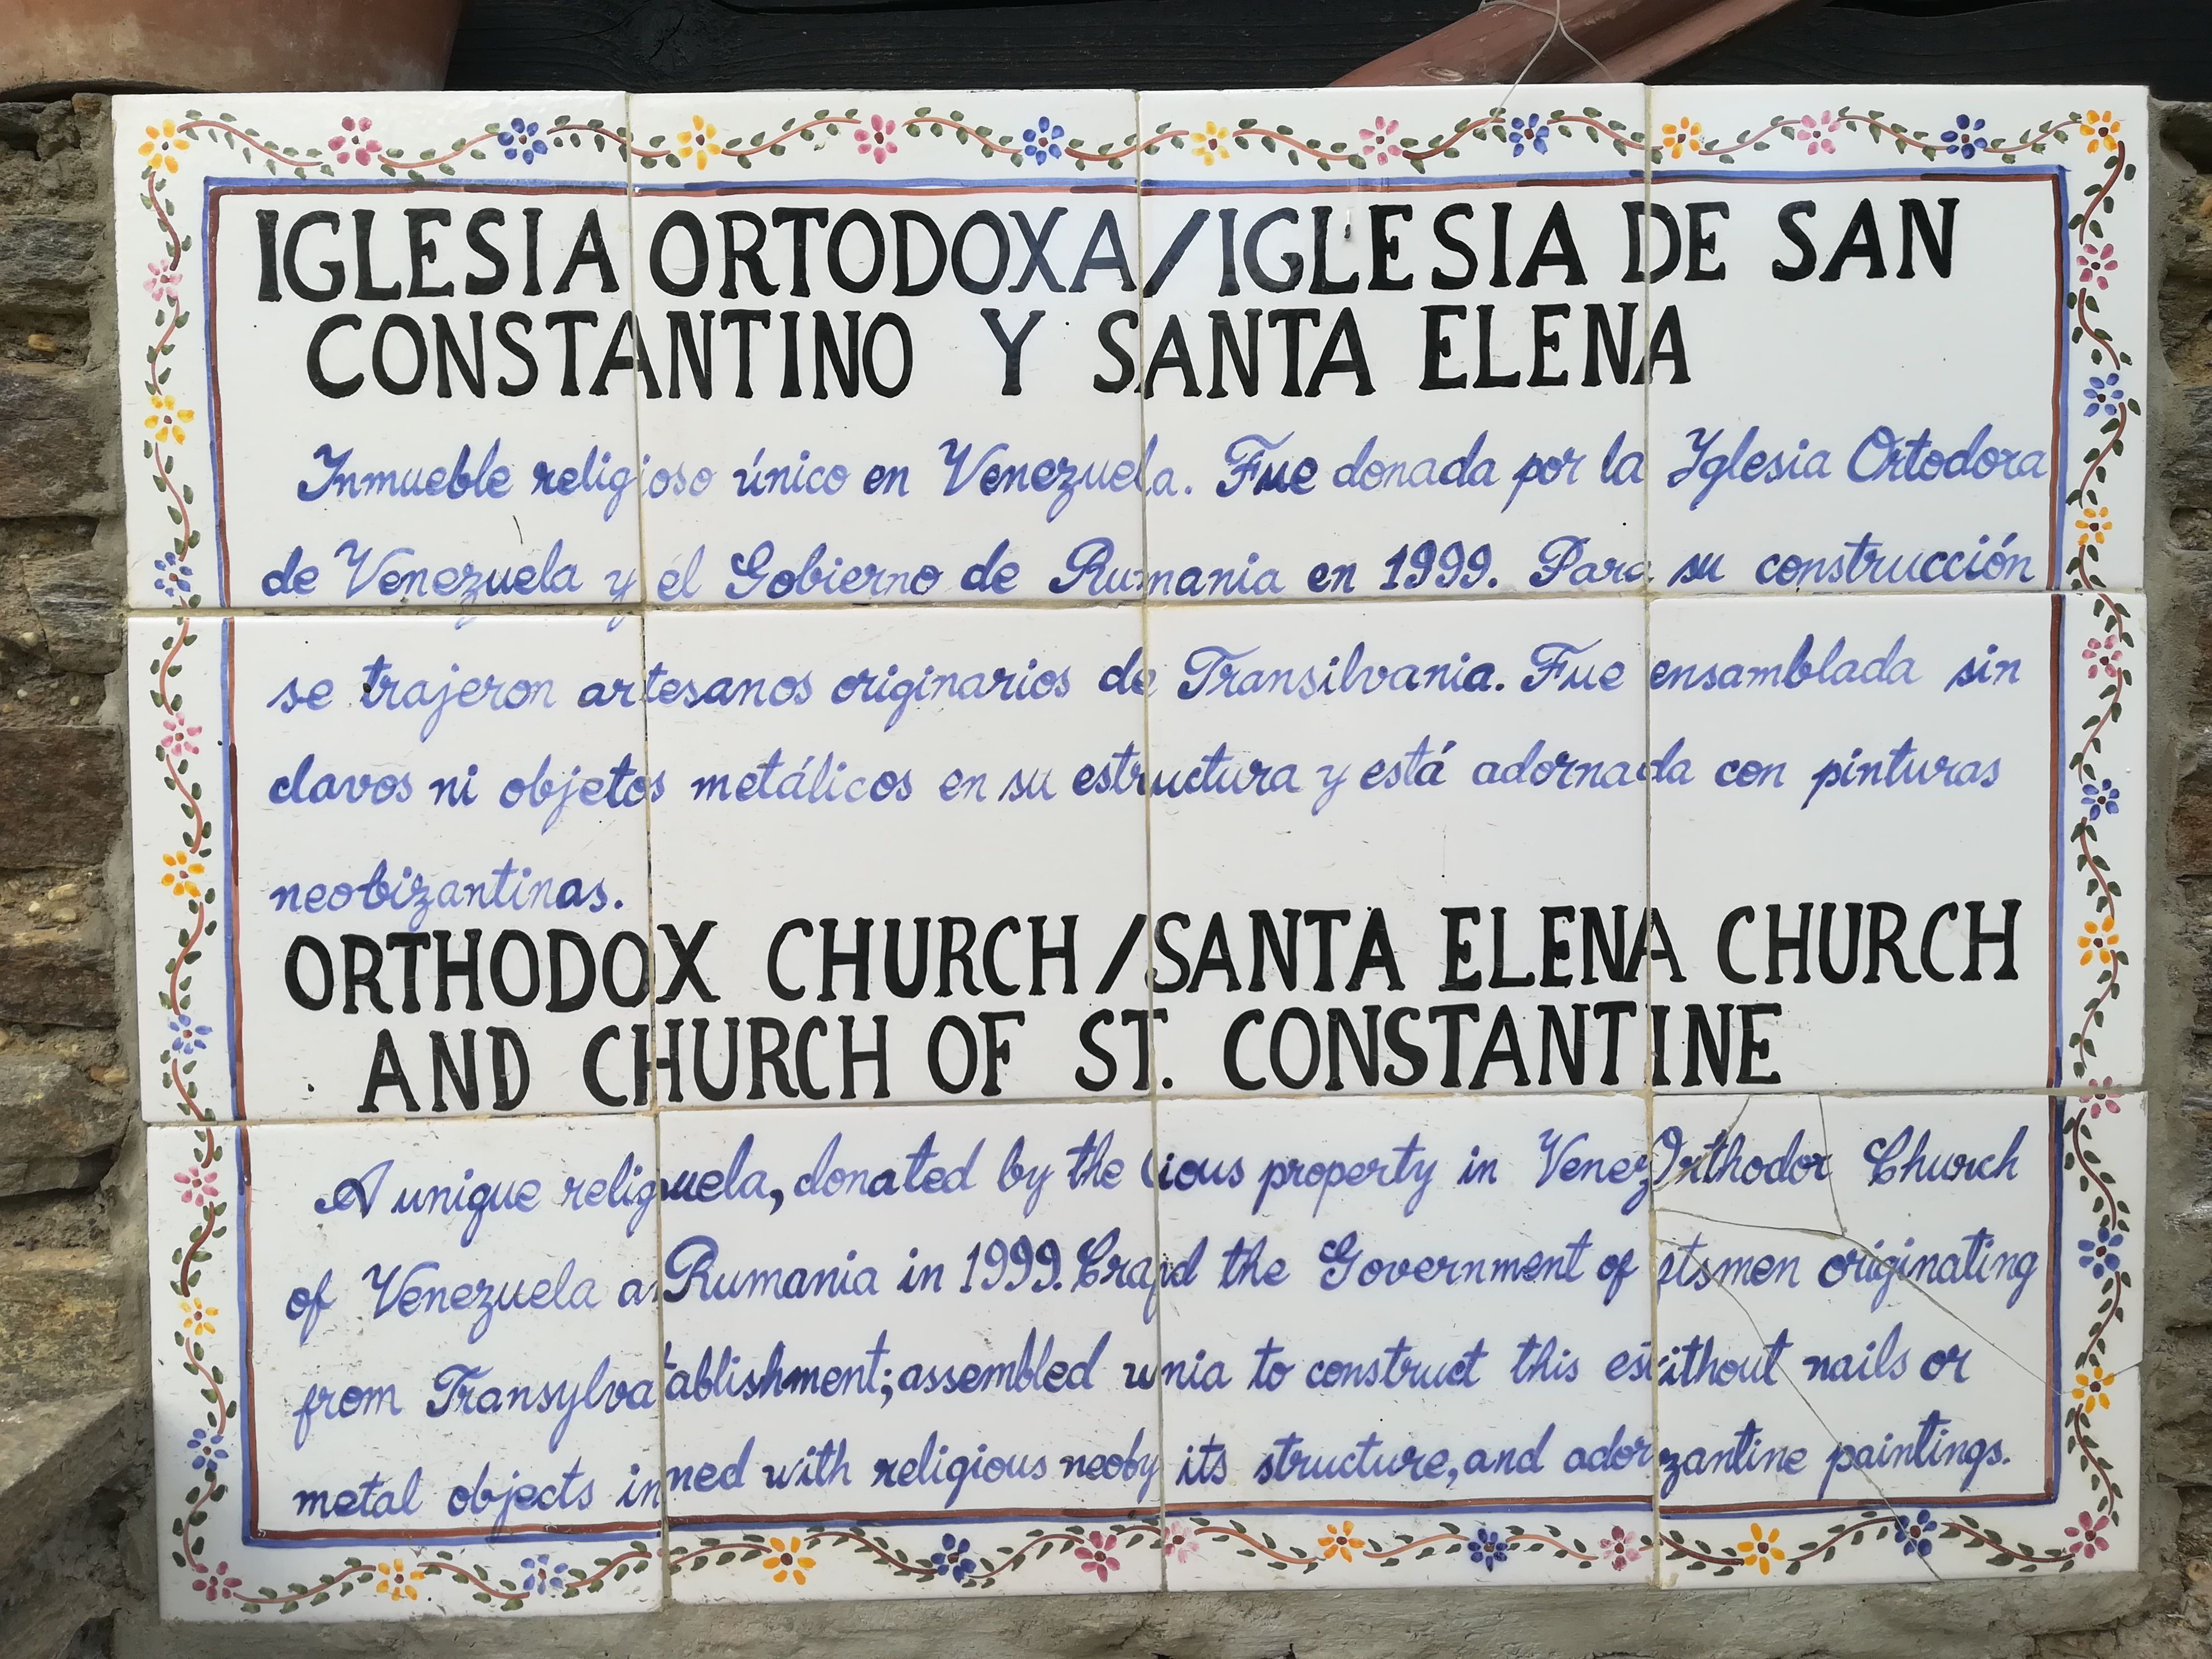 IGLESIA ORTODOXA/IGLESIA DE SAN
CONSTANTINO Y SANTA ELENA
Inmueble religioso único en Venezuela. Fue donada por la Iglesia Ortodora
de Venezuela y el Gobierno de Rumania en 1999. Para su construcción
se trajeron artesanos originarios de Transilvania. Fue ensamblada sin
clavos ni objetos metálicos en su estructura y está adornada con pinturas
neobizantinas.
ORTHODOX CHURCH/SANTA ELENA CHURCH
AND CHURCH OF ST. CONSTANTINE
A unique religuela, donated by the ious property in Venez Orthodor Church
of Venezuela a Rumania in 1999. Crand the Government of ftsmen originating
from Transylva tablishment; assembled unia to construct this esithout nails or
metal objects in ned with religious neoby its structure, and adorzantine paintings.